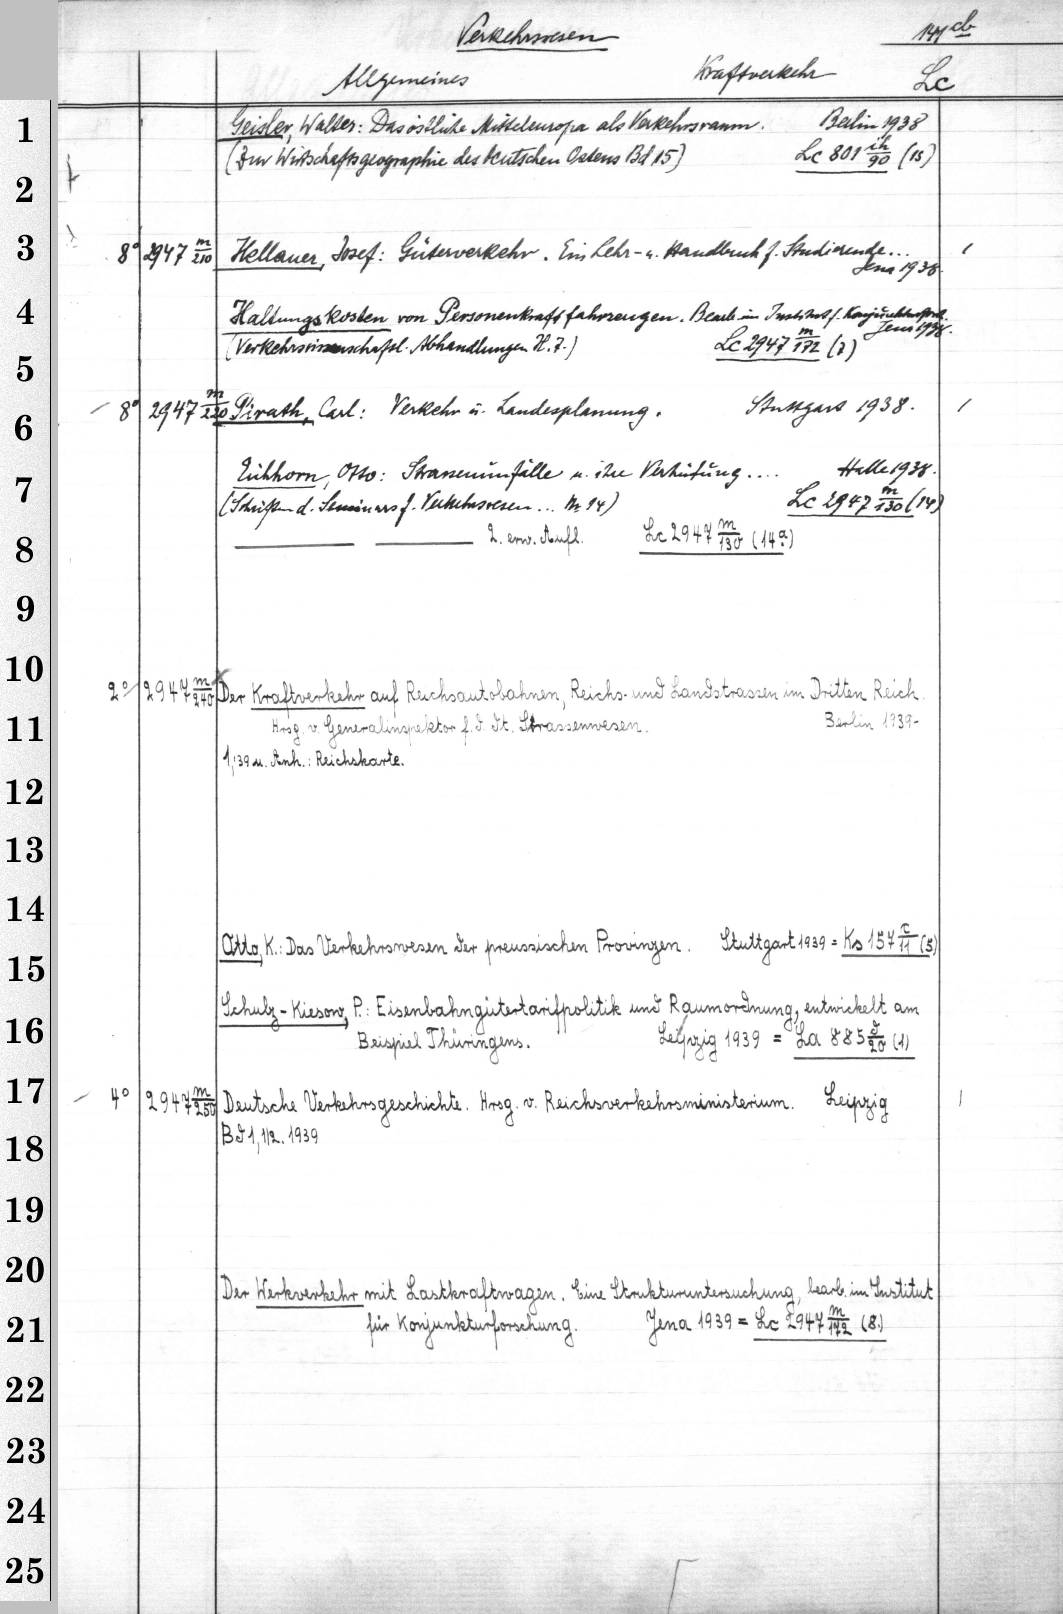 Verkehrswesen
Allgemeines Kraftverkehr Lc
1 Geisler, Walter: Das östliche Mitteleuropa als Verkehrsraum. Berlin 1938
(Zur Wirtschaftsgeographie des deutschen Ostens Bd 15) Lc 801 ih/90 (15)
2
3 8° 2947 m/210 Hellauer, Josef: Güterverkehr. Ein Lehr- u. Handbuch f. Studierende...
Jena 1938.
4 Haltungskosten von Personenkraftfahrzeugen. Bearb. im Institut f. Konjunkturforsch.
Jena 1938.
(Verkehrswissenschaftl. Abhandlungen H. 7.) Lc 2947 m/172 (7)
5
6 8° 2947 m/220 Pirath, Carl: Verkehr u. Landesplanung. Stuttgart 1938.
7 Eichhorn, Otto: Strassenunfälle u. ihre Verhütung.... Halle 1938.
(Schriften d. Seminars f. Verkehrswesen... Nr 14) Lc 2947 m/130 (14)
8 2. erw. Aufl. Lc 2947 m/130 (14a)
9
10 2° 2947 m/240 Der Kraftverkehr auf Reichsautobahnen, Reichs- und Landstrassen im Dritten Reich.
11 Hrsg. v. Generalinspektor f. d. dt. Strassenwesen. Berlin 1939-
1,'39 u. Anh.: Reichskarte.
12
13
14
Otto, K.: Das Verkehrswesen der preussischen Provinzen. Stuttgart 1939 = Ks 157 c/11 (5)
15
Schulz-Kiesow, P.: Eisenbahngütertarifpolitik und Raumordnung, entwickelt am
16 Beispiel Thüringens. Leipzig 1939 = La 885 d/20 (1)
17 4° 2947 m/250 Deutsche Verkehrsgeschichte. Hrsg. v. Reichsverkehrsministerium. Leipzig
18 Bd 1, 1/2. 1939
19
20
Der Werkverkehr mit Lastkraftwagen. Eine Strukturuntersuchung, bearb. im Institut
21 für Konjunkturforschung. Jena 1939 = Lc 2947 m/172 (8.)
22
23
24
25